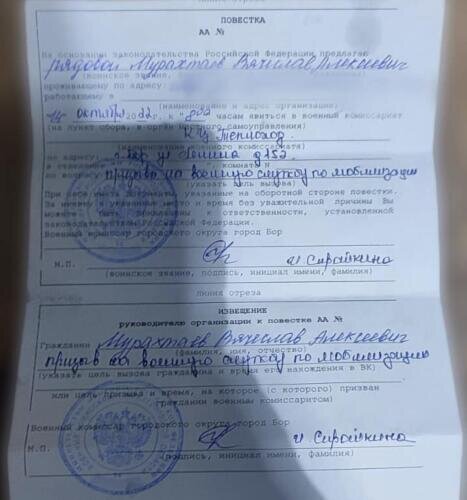 линия отреза
ПОВЕСТКА
АА №
На основании законодательства Российской Федерации предлагаю
рядовой Мурахтаев Вячеслав Алексеевич
(воинское звание,
проживающему по адресу:
работающему в
(наименование и адрес организации)
14 октября 2022 г. к "800 часам явиться в военный комиссариат
(на пункт сбора, в орган местного самоуправления)
КЦ Теплоход
(наименование военного комиссариата)
по адресу: г. Бор ул Ленина д 152
, комната
по вопросу призыв на военную службу по мобилизации
(указать цель вызова)
При себе иметь документы, указанные на оборотной стороне повестки.
За неявку в указанные место и время без уважительной причины Вы
можете быть привлечены к ответственности, установленной
законодательством Российской Федерации.
Военный комиссар городского округа город Бор
М.П.
(воинское звание, подпись, инициал имени, фамилия)
линия отреза
ИЗВЕЩЕНИЕ
руководителю организации к повестке АА №
Гражданин Мурахтаев Вячеслав Алексеевич
(фамилия, имя, отчество)
призыв на военную службу по мобилизации
(указать цель вызова гражданина и время его нахождения в ВК)
или цель призыва и время, на которое (с которого) призван
гражданин военным комиссариатом)
Военный комиссар городского округа город Бор
М.П.
(подпись, инициал имени, фамилия)